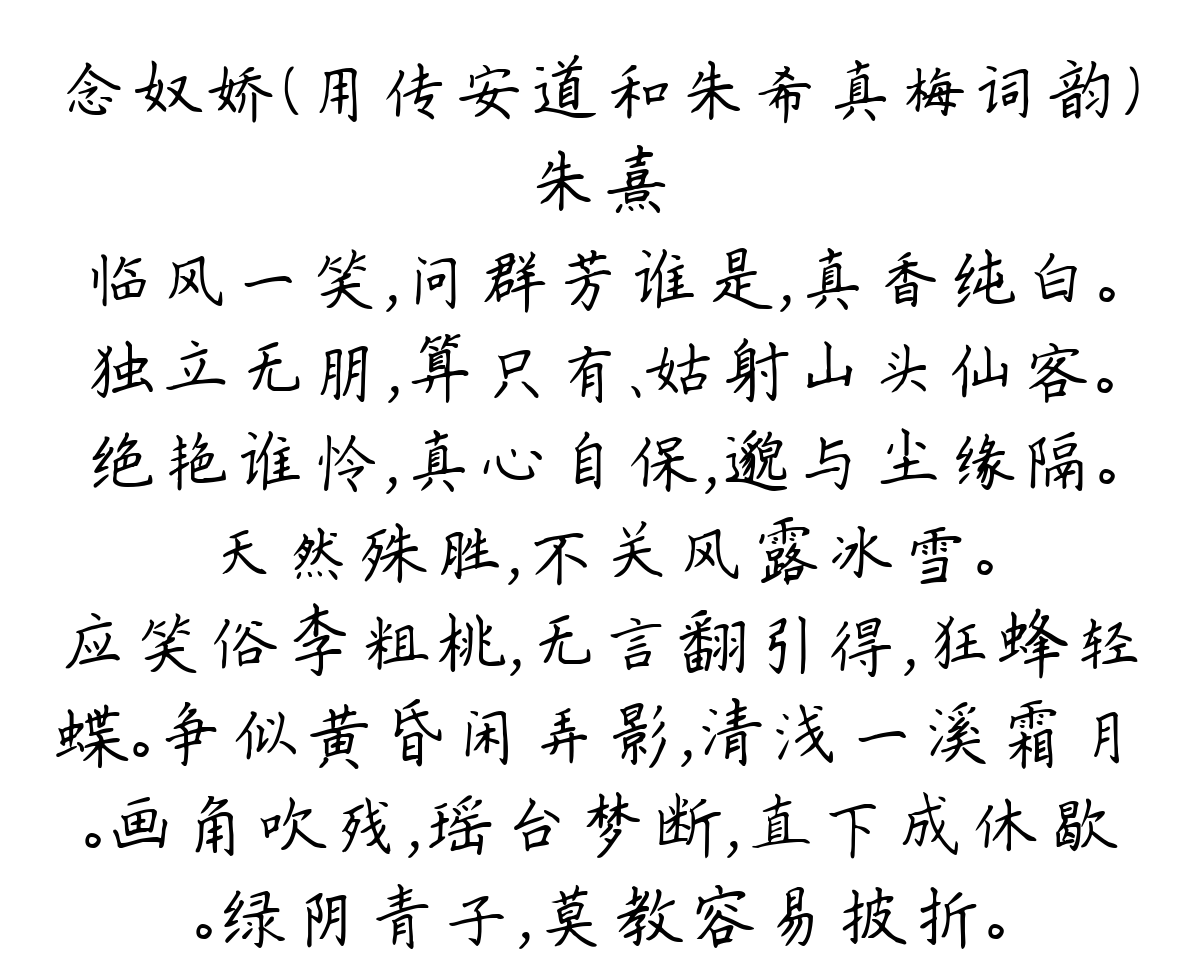 念奴娇(用传安道和朱希真梅词韵)
朱熹
临风一笑,问群芳谁是,真香纯白。
独立无朋,算只有、姑射山头仙客。
绝艳谁怜,真心自保,邈与尘缘隔。
天然殊胜,不关风露冰雪。
应笑俗李粗桃,无言翻引得,狂蜂轻
蝶。争似黄昏闲弄影,清浅一溪霜月
。画角吹残,瑶台梦断,直下成休歇
。绿阴青子,莫教容易披折。